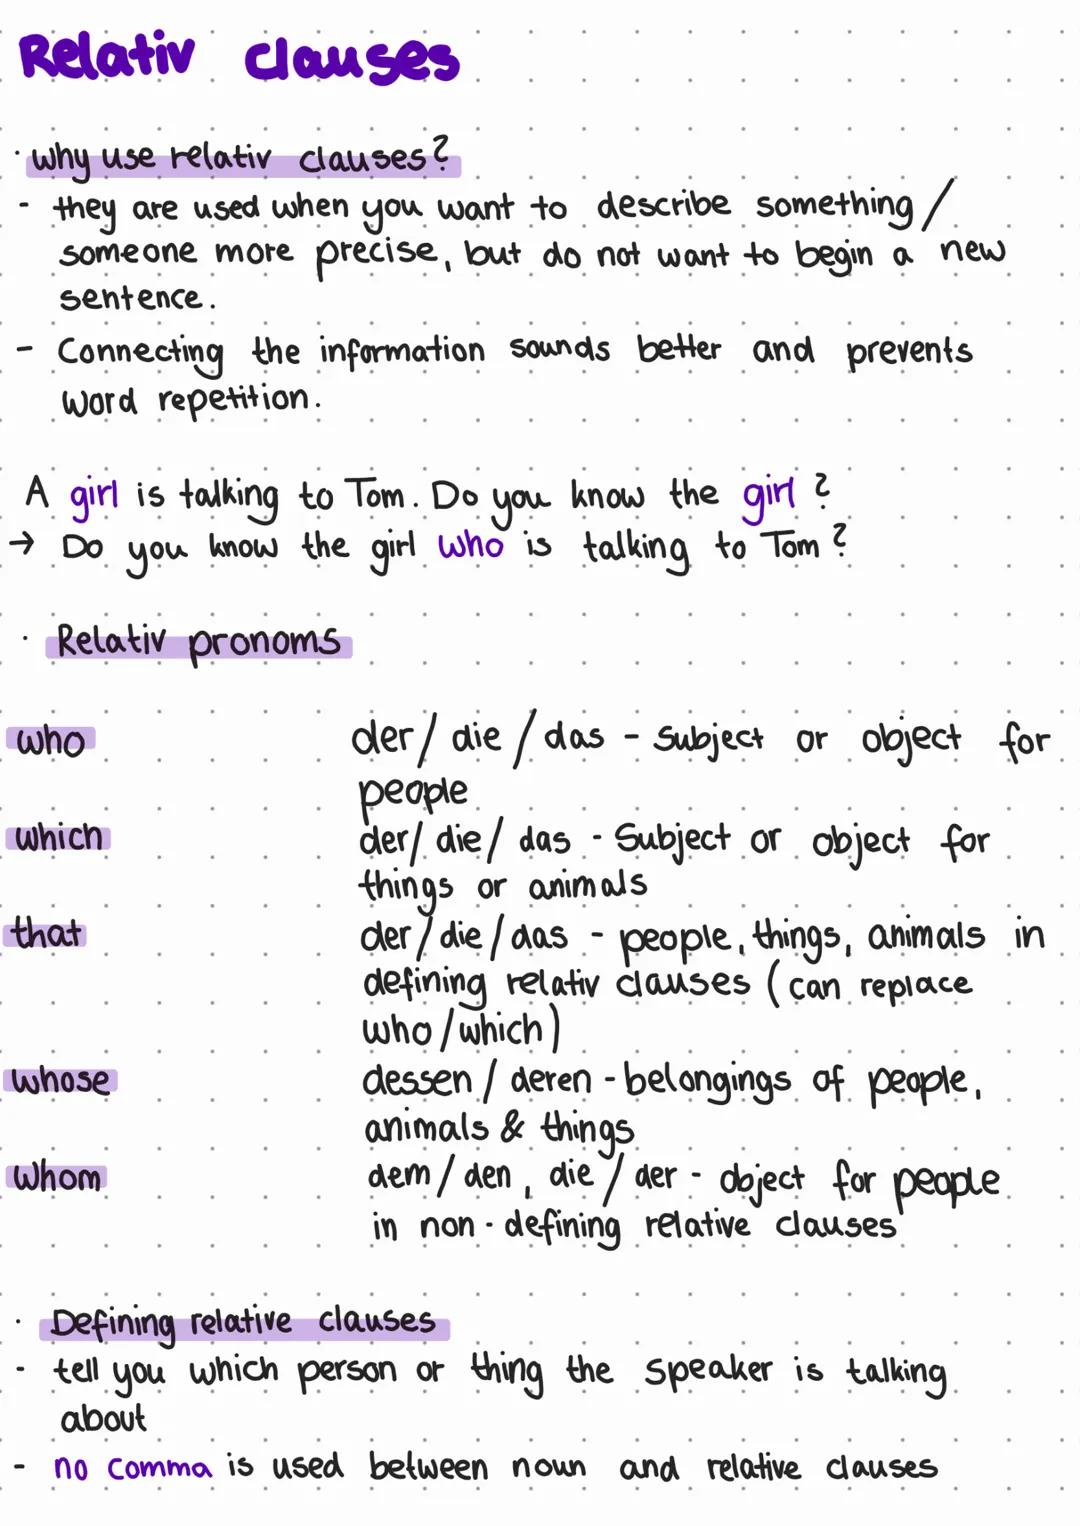 Relativ clauses
· why use relativ clauses?
- they are used when you want to describe something /
someone more precise, but do not want to begin a new
sentence.
- Connecting the information sounds better and prevents
word repetition.
A girl is talking to Tom. Do you know the girl?
→ Do you know the girl who is talking to Tom?
· Relativ pronoms
who der/ die / das - subject or object for
people
which der/ die/ das - Subject or object for
things or animals
that der/ die/das - people, things, animals in
defining relativ clauses (can replace
who/which)
whose dessen / deren - belongings of people,
animals & things
whom dem / den, die / der - object for people
in non-defining relative clauses
· Defining relative clauses
- tell you which person or thing the speaker is talking
about
- no comma is used between noun and relative clauses